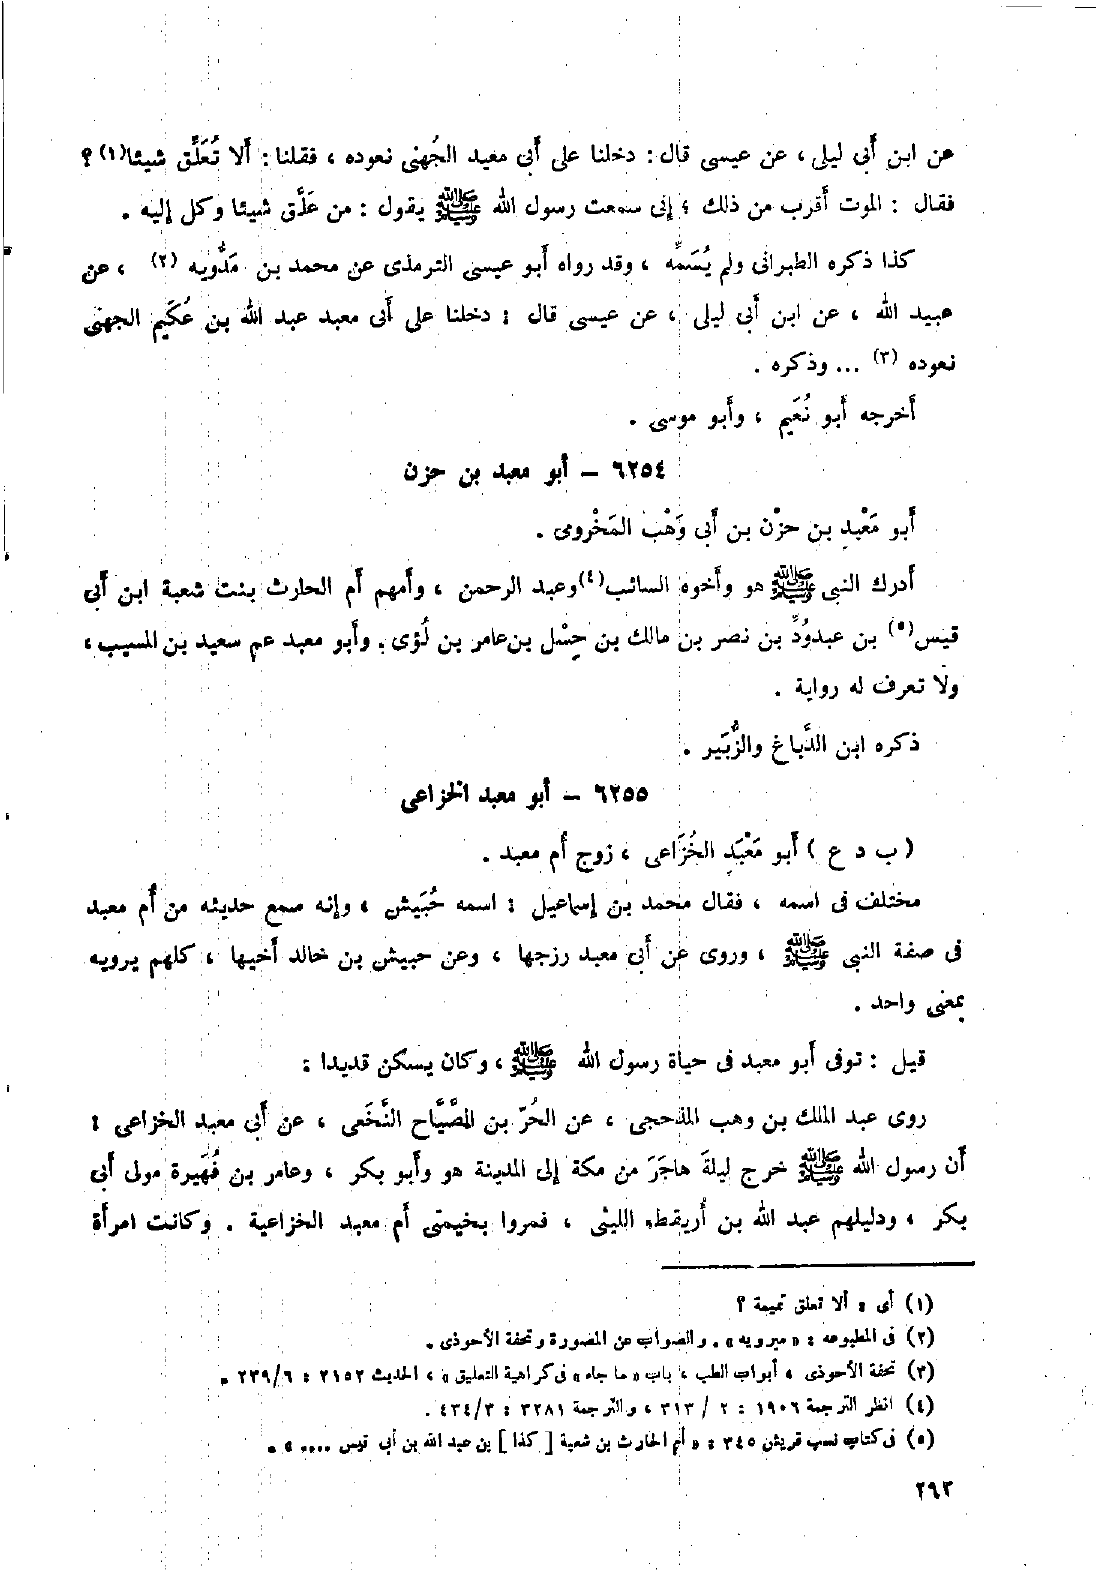 عن ابن أبى ليلى ، عن عيسى قال : دخلنا على أبى معبد الجُهنى نعوده ، فقلنا : ألا تُعَلِّق شيئا (١) ؟
فقال : الموت أقرب من ذلك ؛ إنى سمعت رسول الله ﷺ يقول : من عَلَّق شيئا وكل إليه .
كذا ذكره الطبرانى ولم يُسَمِّه ، وقد رواه أبو عيسى الترمذى عن محمد بن مَدُّويه (٢) ، عن
عبيد الله ، عن ابن أبى ليلى ، عن عيسى قال : دخلنا على أبى معبد عبد الله بن عُكَيم الجهنى
نعوده (٣) ... وذكره .
أخرجه أبو نُعَيم ، وأبو موسى .
٦٢٥٤ – أبو معبد بن حزن
أبو مَعْبدِ بن حزْن بن أبى وَهْب المَخْزومى .
أدرك النبى ﷺ هو وأخوه السائب (٤) وعبد الرحمن ، وأمهم أم الحارث بنت شعبة ابن أبى
قيس (٥) بن عبدوُدِّ بن نصر بن مالك بن حِسْل بن عامر بن لُؤى . وأبو معبد عم سعيد بن المسيب ،
ولا تعرف له رواية .
ذكره ابن الدَّباغ والزُّبَير .
٦٢٥٥ – أبو معبد الخزاعى
( ب د ع ) أبو مَعْبَدِ الخُزَاعى ، زوج أم معبد .
مختلف فى اسمه ، فقال محمد بن إسماعيل : اسمه حُبَيش ، وإنه سمع حديثه من أُم معبد
فى صفة النبى ﷺ ، وروى عن أبى معبد رزجها ، وعن حبيش بن خالد أخيها ، كلهم يرويه
بمعنى واحد .
قيل : توفى أبو معبد فى حياة رسول الله ﷺ ، وكان يسكن قديدا :
روى عبد الملك بن وهب المذحجى ، عن الحُرّ بن الصَّيَّاح النَّخَعى ، عن أبى معبد الخزاعى :
أن رسول الله ﷺ خرج ليلةَ هاجَرَ من مكة إلى المدينة هو وأبو بكر ، وعامر بن فُهَيرة مولى أبى
بكر ، ودليلهم عبد الله بن أُريقط الليثى ، فمروا بخيمتى أم معبد الخزاعية . وكانت امرأة
(١) أى : ألا تعلق تميمة ؟
(٢) فى المطبوعة : « ميرويه » . والصواب عن المصورة وتحفة الأحوذى .
(٣) تحفة الأحوذى ، أبواب الطب ، باب « ما جاء » فى كراهية التعليق » ، الحديث ٢١٥٢ : ٦/٢٣٩ .
(٤) انظر الترجمة ١٩٠٦ : ٢ / ٣١٣ ، والترجمة ٣٢٨١ : ٣/٤٣٤ .
(٥) فى كتاب نسب قريش ٣٤٥ : « أم الحارث بن شعبة [ كذا ] بن عبد الله بن أبى قيس .... » .
٢٩٣